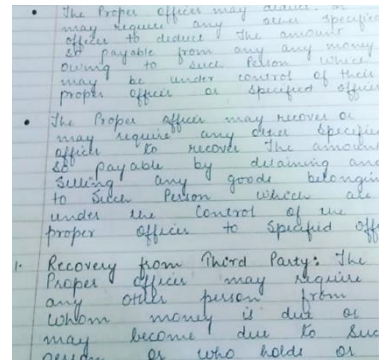 • The Proper officer may deduct or
may require any other specified
officer to deduct The amount
so payable from any any money
owing to such Person which
may be under control of their
proper officer or specified officer
• The Proper officer may recover or
may require any other specified
officer to recover The amount
so payable by detaining and
Selling any goods belonging
to Such Person which are
under the Control of the
proper officer to Specified off
1. Recovery from Third Party: The
Proper officer may require
any other person from
whom money is due or
may become due to suc
person or who holds or